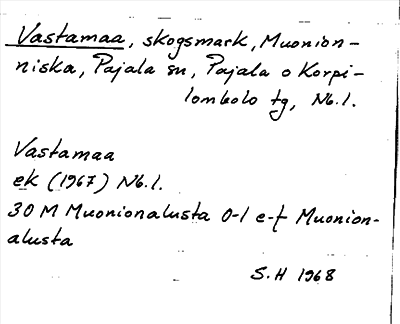 Vastamaa, skogsmark, Muonion-
niska, Pajala sn, Pajala o Korpi-
lombolo tg, Nb.l.
Vastamaa
ek (1967) Nb.l.
30 M Muonionalusta 0-1 e-f Muonion-
alusta
S.H 1968